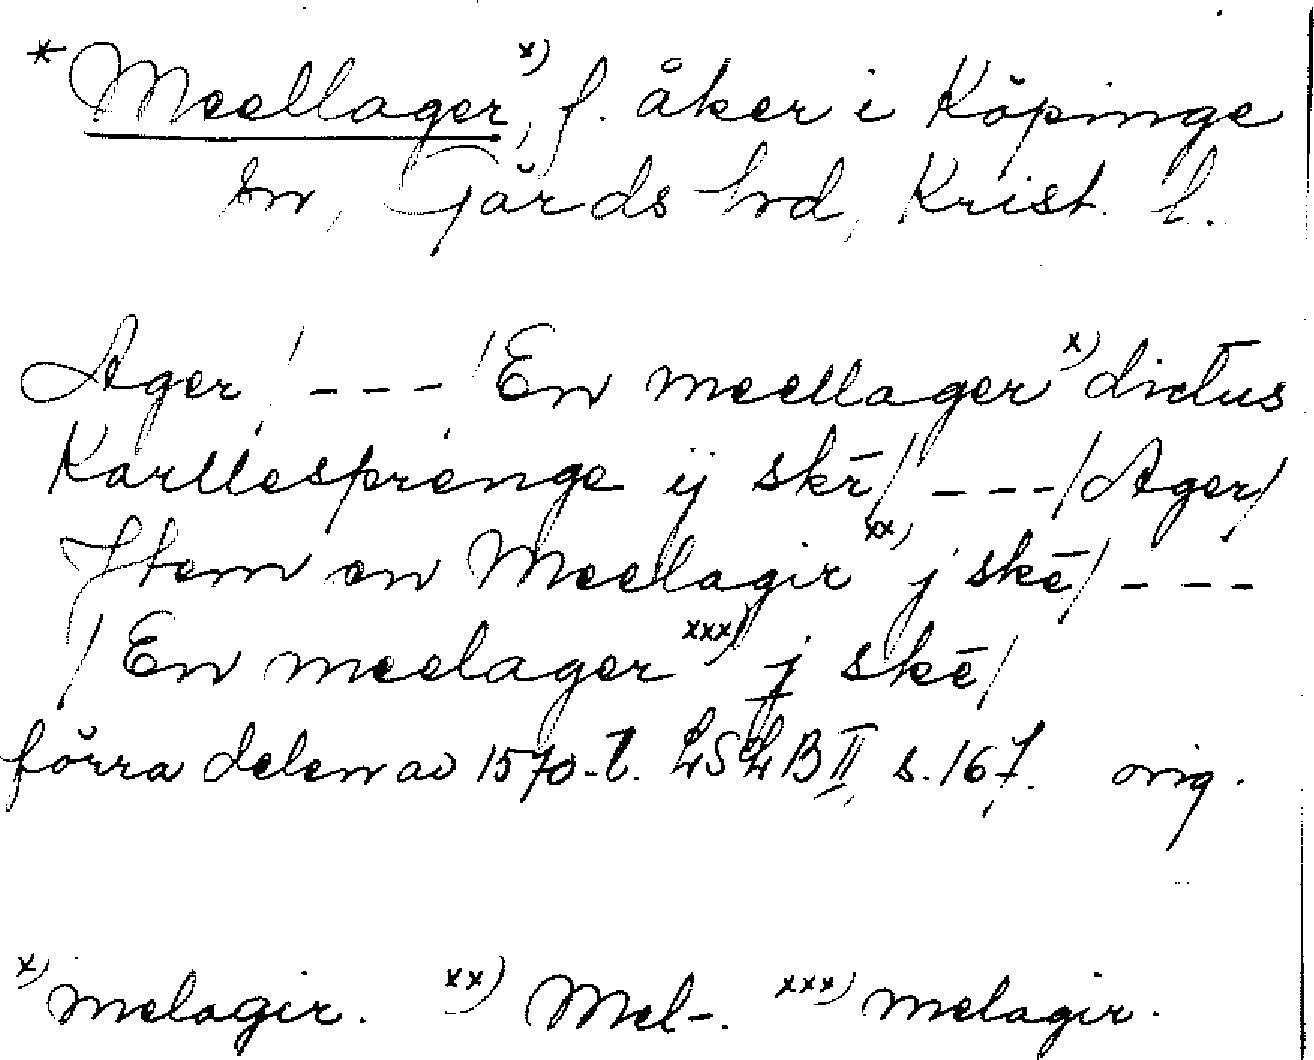 * Meellager x), f. åker i Köpinge
sn, Gärds hrd, Krist. l.
Ager / - - - / En meellager x) dictus
Karllesprenge ij skē / - - - / Ager /
Item en Meelagir xx) j skē / - - -
/ En meelager xxx) j skē /
förra delen av 1570-t. LSLB II, s. 167. orig.
x) melagir. xx) Mel-. xxx) melagir.